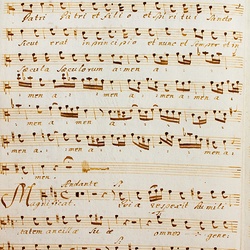 Patri Patri et Filio et spiritui Sancto
Sicut erat in principio et nunc et semper et in
Saecula Saeculorum amen a
men a men a men a
men a men a
men a men
Andante
Magnificat. quia respexit humili
tatem ancillae suae omnes gene